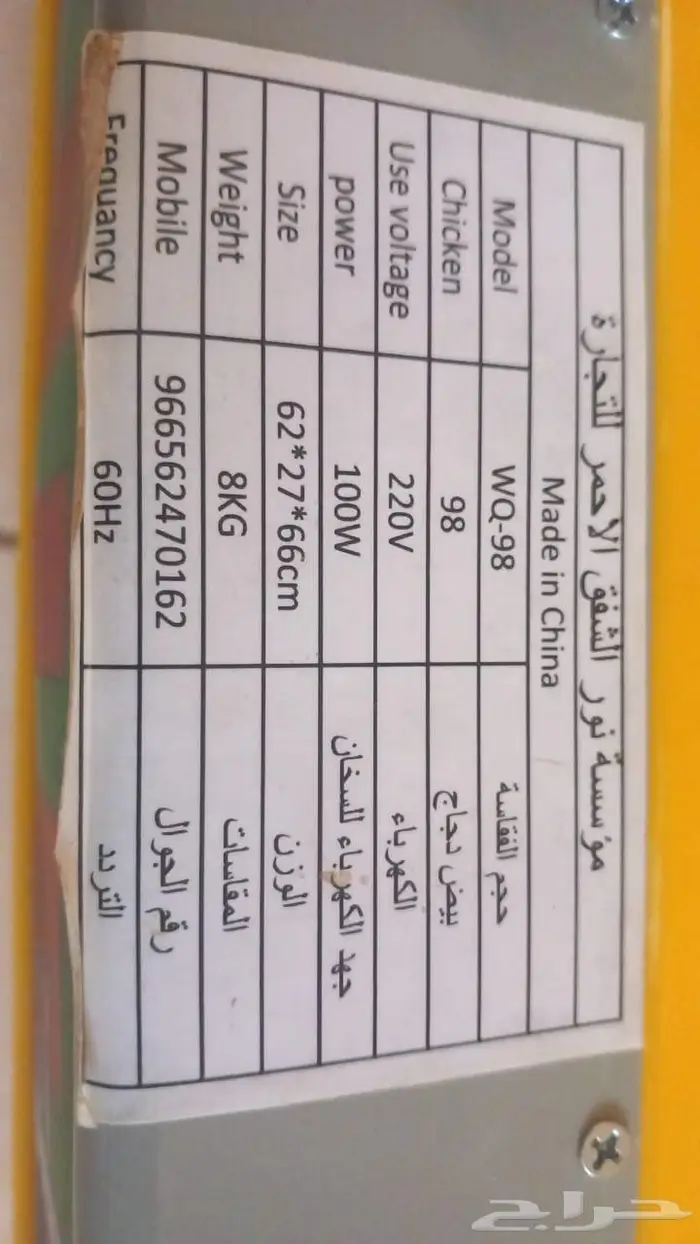 مؤسسة نور الشفق الاحمر للتجارة
Made in China
Model WQ-98 حجم الفقاسة
Chicken 98 بيض دجاج
Use voltage 220V الكهرباء
power 100W جهد الكهرباء للسخان
Size 62*27*66cm الوزن
Weight 8KG المقاسات
Mobile 966562470162 رقم الجوال
Frequancy 60Hz التردد
حراج